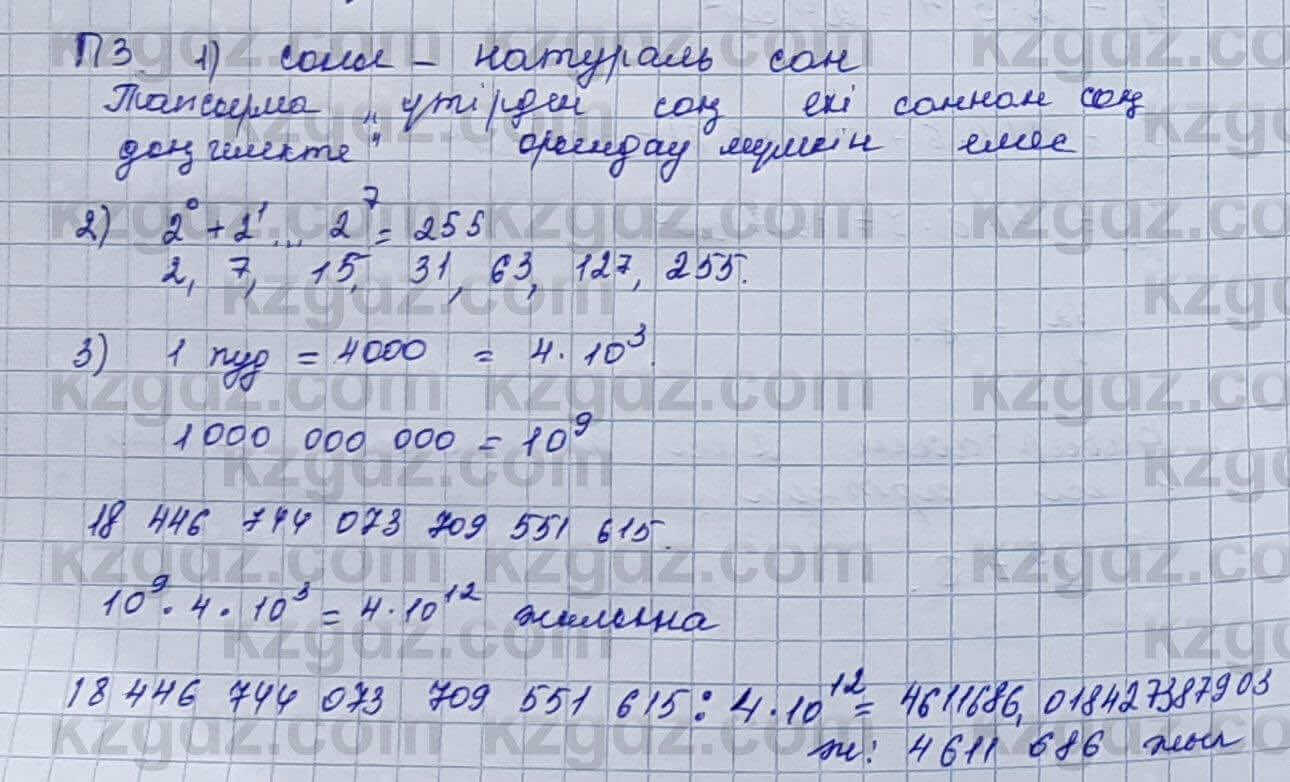 П3 1) саны – натураль сан
Тапсырма „үтірден соң екі саннан соң
дөңгелекте" орындау мүмкін емес
2) 2⁰ + 2¹ ... 2⁷ = 255
2, 7, 15, 31, 63, 127, 255.
3) 1 пуд = 4000 = 4 · 10³.
1 000 000 000 = 10⁹
18 446 744 073 709 551 615.
10⁹ · 4 · 10³ = 4 · 10¹² жылына
18 446 744 073 709 551 615 : 4 · 10¹² = 4611686,018427387903
ж: 4611 686 жыл
kzgdz.com